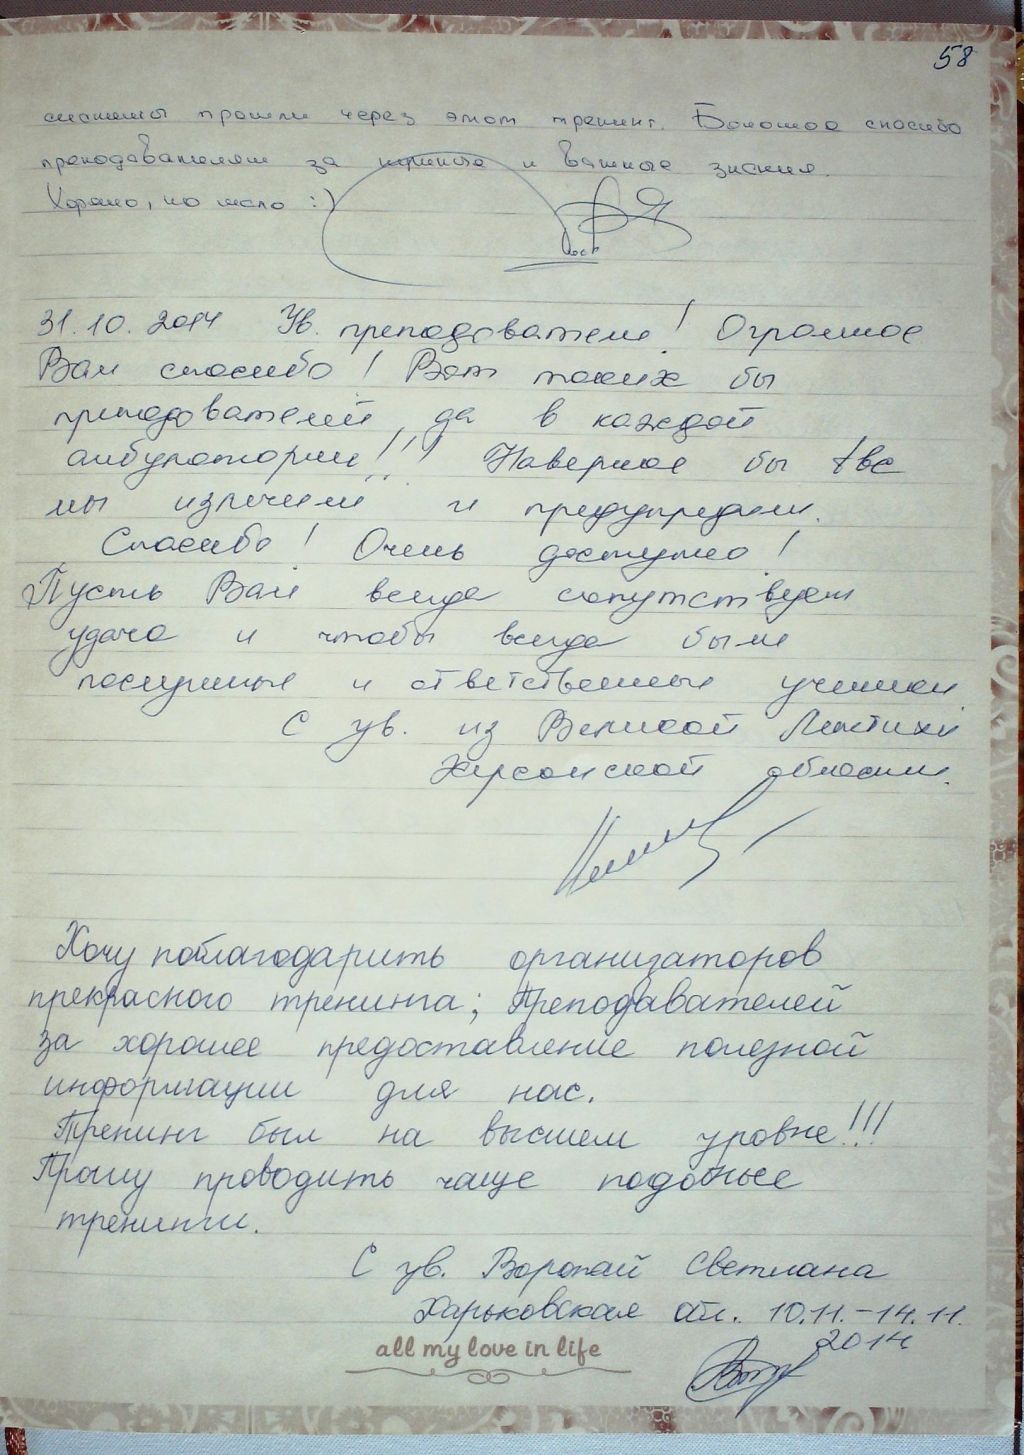 58
системы прошли через этот тренинг. Большое спасибо
преподавателям за нужные и важные знания.
Хорошо, но мало :)
31.10.2014 Ув. преподаватели! Огромное
Вам спасибо! Вот таких бы
преподователей, да в каждой
амбулатории!!! Наверное бы твс
мы излечили и предупредили.
Спасибо! Очень доступно!
Пусть Вам всегда сопутствует
удача и чтобы всегда были
послушные и ответственные ученики.
С ув. из Великой Лепетихи
Херсонской области.
Хочу поблагодарить организаторов
прекрасного тренинга; Преподавателей
за хорошее предоставление полезной
информации для нас.
Тренинг был на высшем уровне!!!
Прошу проводить чаще подобные
тренинги.
С ув. Воропай Светлана
Харьковская обл. 10.11.-14.11.
2014
all my love in life